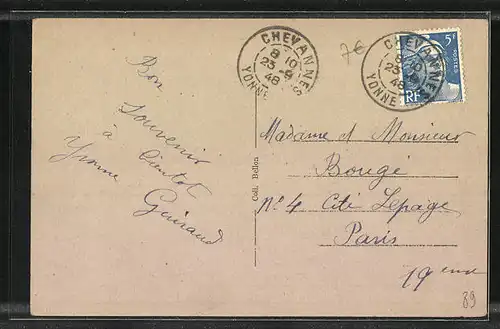 Bon
Souvenir
à bientot
Yvonne Guiraud
CHEVANNES
8 10
23-9
48
YONNE
7€
CHEVANNES
8 10
23-9
48
YONNE
5F
POSTES
RF
Coll. Bellon
Madame et Monsieur
Bougé
N° 4 Cité Lepage
Paris
19eme
89